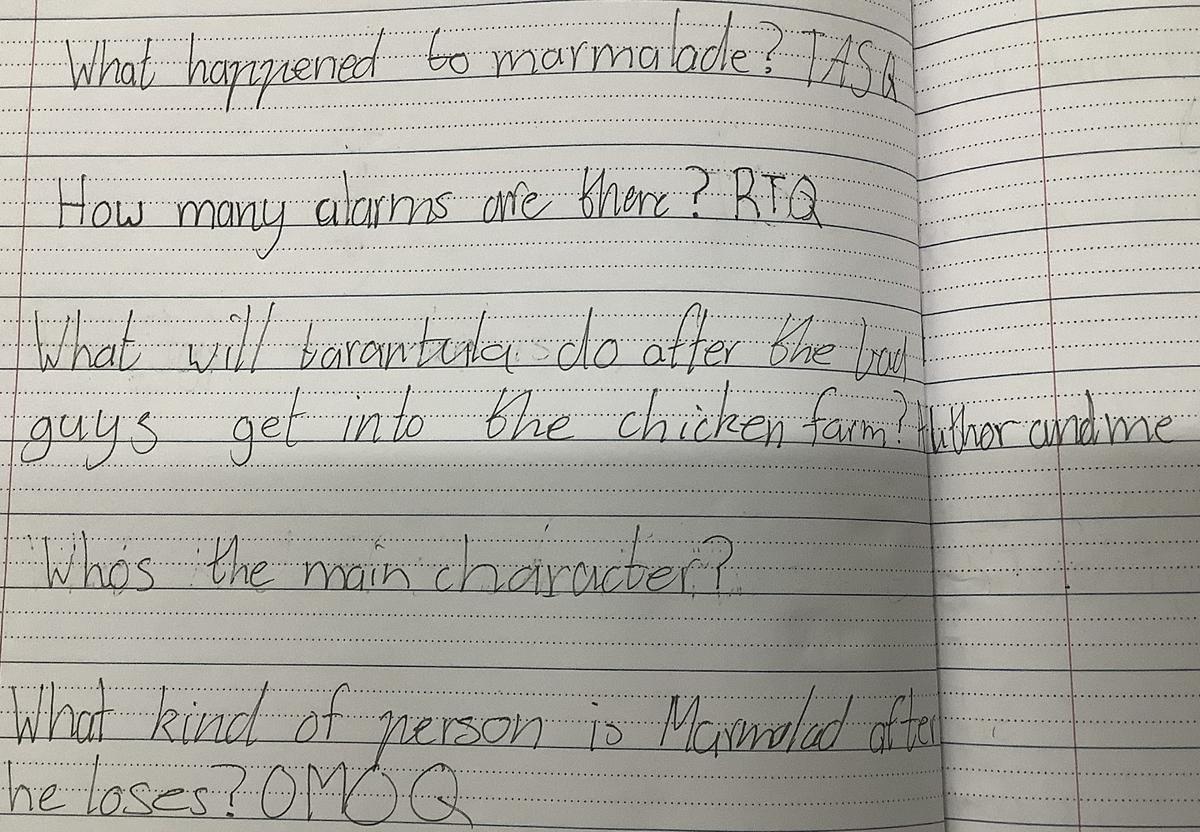 What happened to marmalade? TASQ
How many alarms are there? RTQ
What will tarantula do after the bad
guys get into the chicken farm? Author and me
Who's the main character?
What kind of person is Marmalad after
he loses? OMOQ